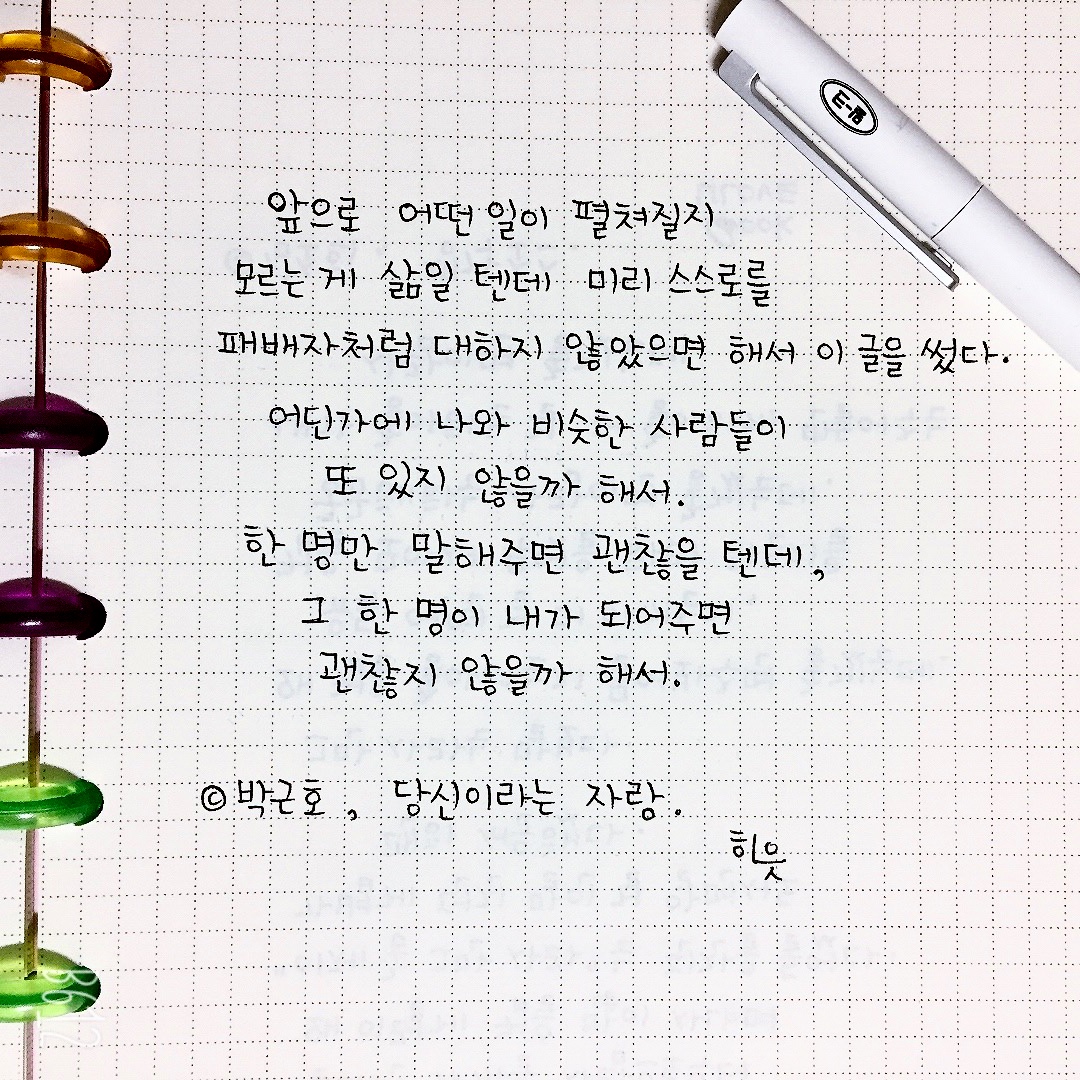 앞으로 어떤 일이 펼쳐질지
모르는 게 삶일 텐데 미리 스스로를
패배자처럼 대하지 않았으면 해서 이 글을 썼다.
어딘가에 나와 비슷한 사람들이
또 있지 않을까 해서.
한 명만 말해주면 괜찮을 텐데,
그 한 명이 내가 되어주면
괜찮지 않을까 해서.
© 박근호, 당신이라는 자랑.
히읏
B612